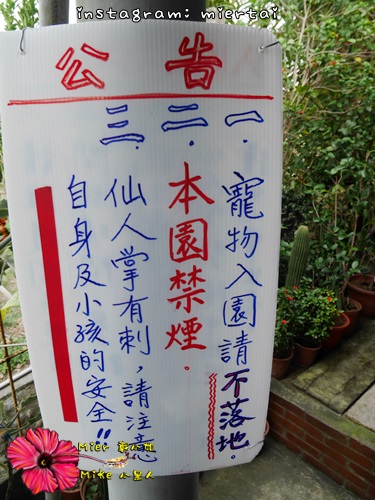 instagram: miertai
公告
一.寵物入園請不落地.
二.本園禁煙.
三.仙人掌有刺,請注意
自身及小孩的安全"
Mier
Mike 小星人